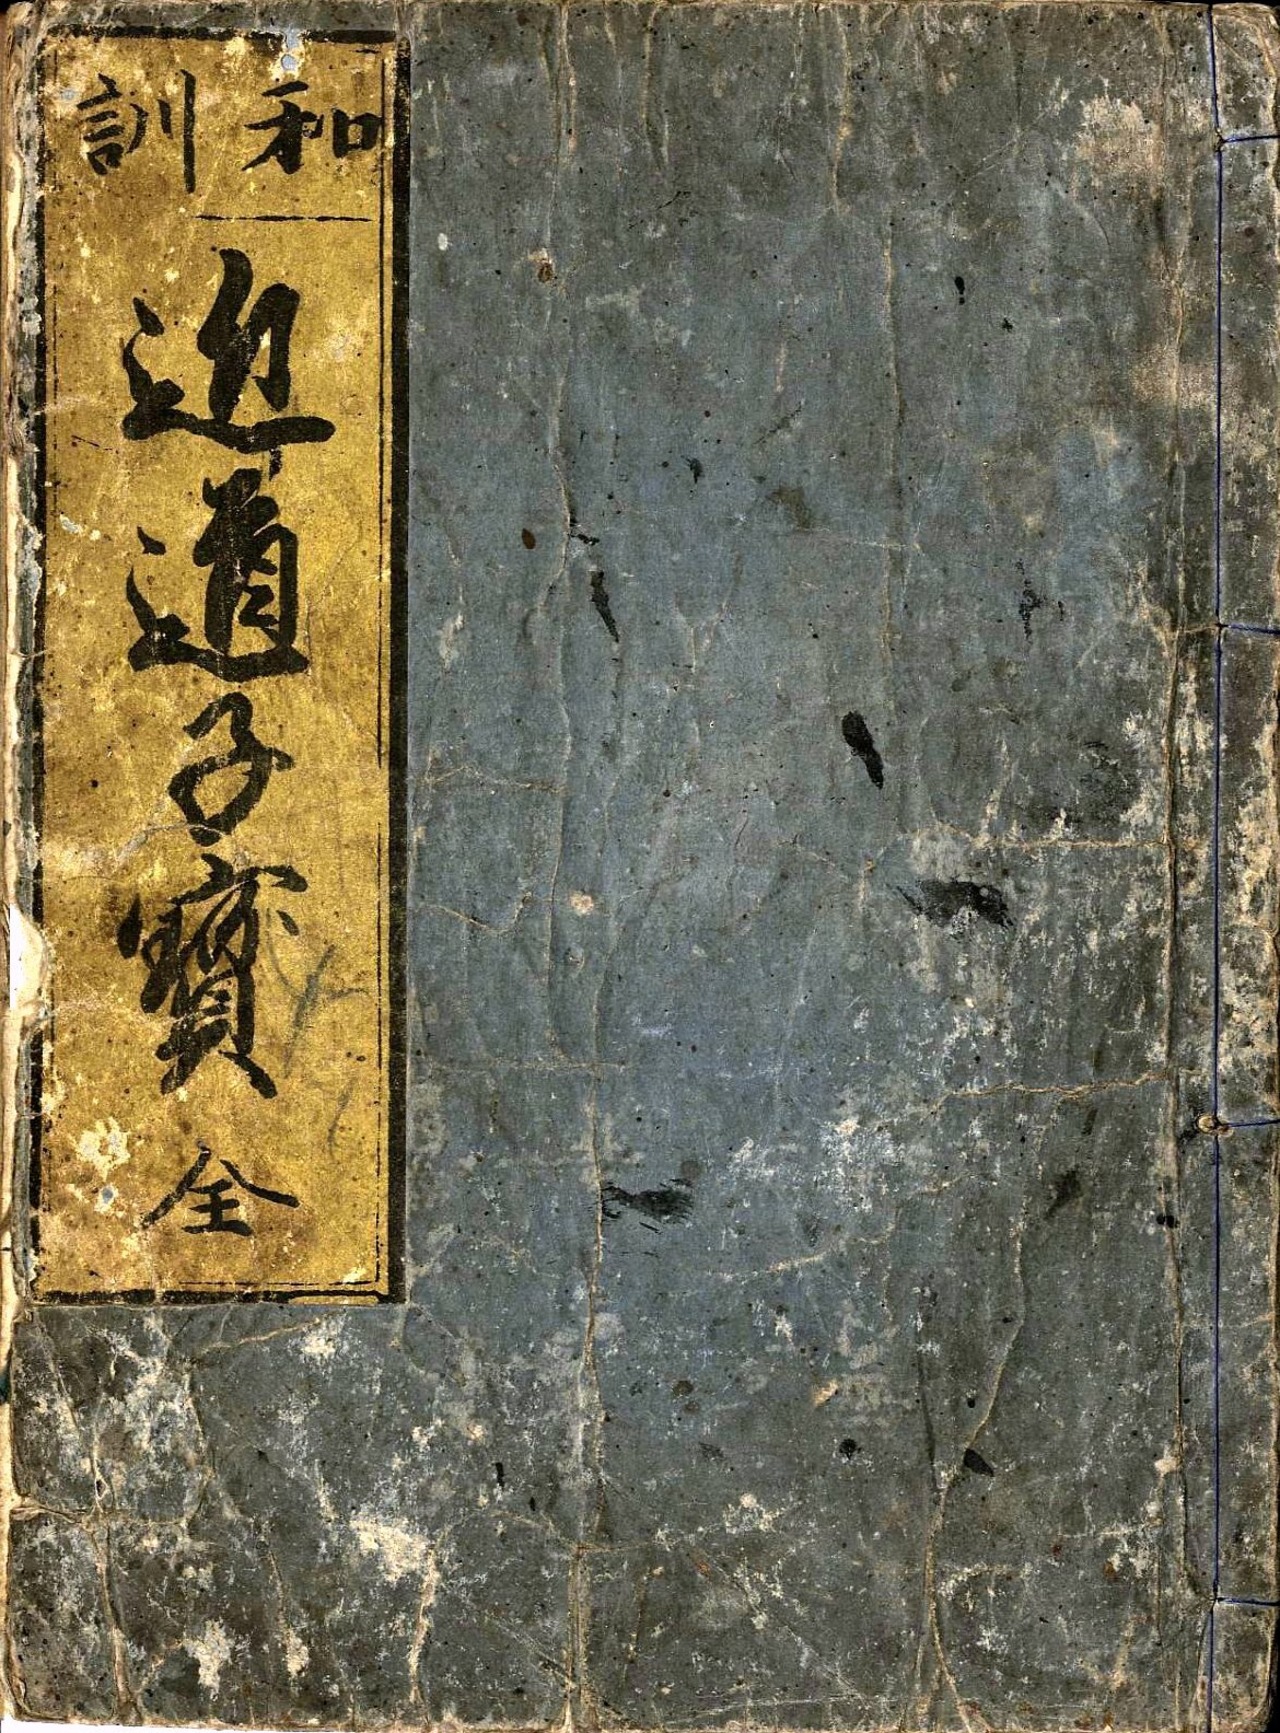 和訓
近道子寶
全